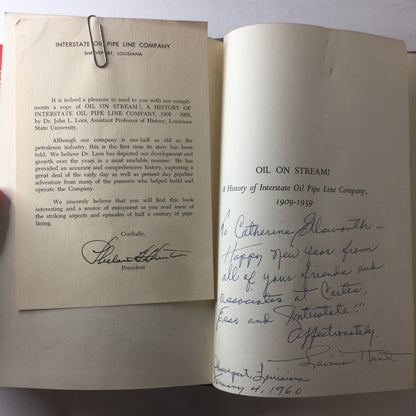 INTERSTATE OIL PIPE LINE COMPANY
SHREVEPORT, LOUISIANA
It is indeed a pleasure to send to you with our compli-
ments a copy of OIL ON STREAM!, A HISTORY OF
INTERSTATE OIL PIPE LINE COMPANY, 1909 - 1959,
by Dr. John L. Loos, Assistant Professor of History, Louisiana
State University.
Although our company is one-half as old as the
petroleum industry, this is the first time its story has been
told. We believe Dr. Loos has depicted our development and
growth over the years in a most readable manner. He has
provided an accurate and comprehensive history, capturing a
great deal of the early day as well as present day pipeline
adventure from many of the pioneers who helped build and
operate the Company.
We sincerely believe that you will find this book
interesting and a source of enjoyment as you read some of
the striking aspects and episodes of half a century of pipe-
lining.
Cordially,
President
OIL ON STREAM!
A History of Interstate Oil Pipe Line Company,
1909-1959
To Catherine Ellsworth-
Happy New Year from
all of your friends and
associates at Carter,
Esso and Interstate!!!
Affectionately,
Shreveport, Louisiana
January 4, 1960